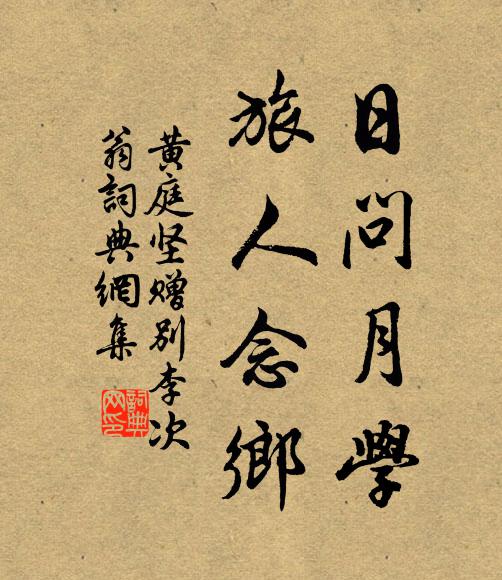 日問月學
旅人念鄉
黃庭坚赠別李次
翁詞典網集
詞典
网印